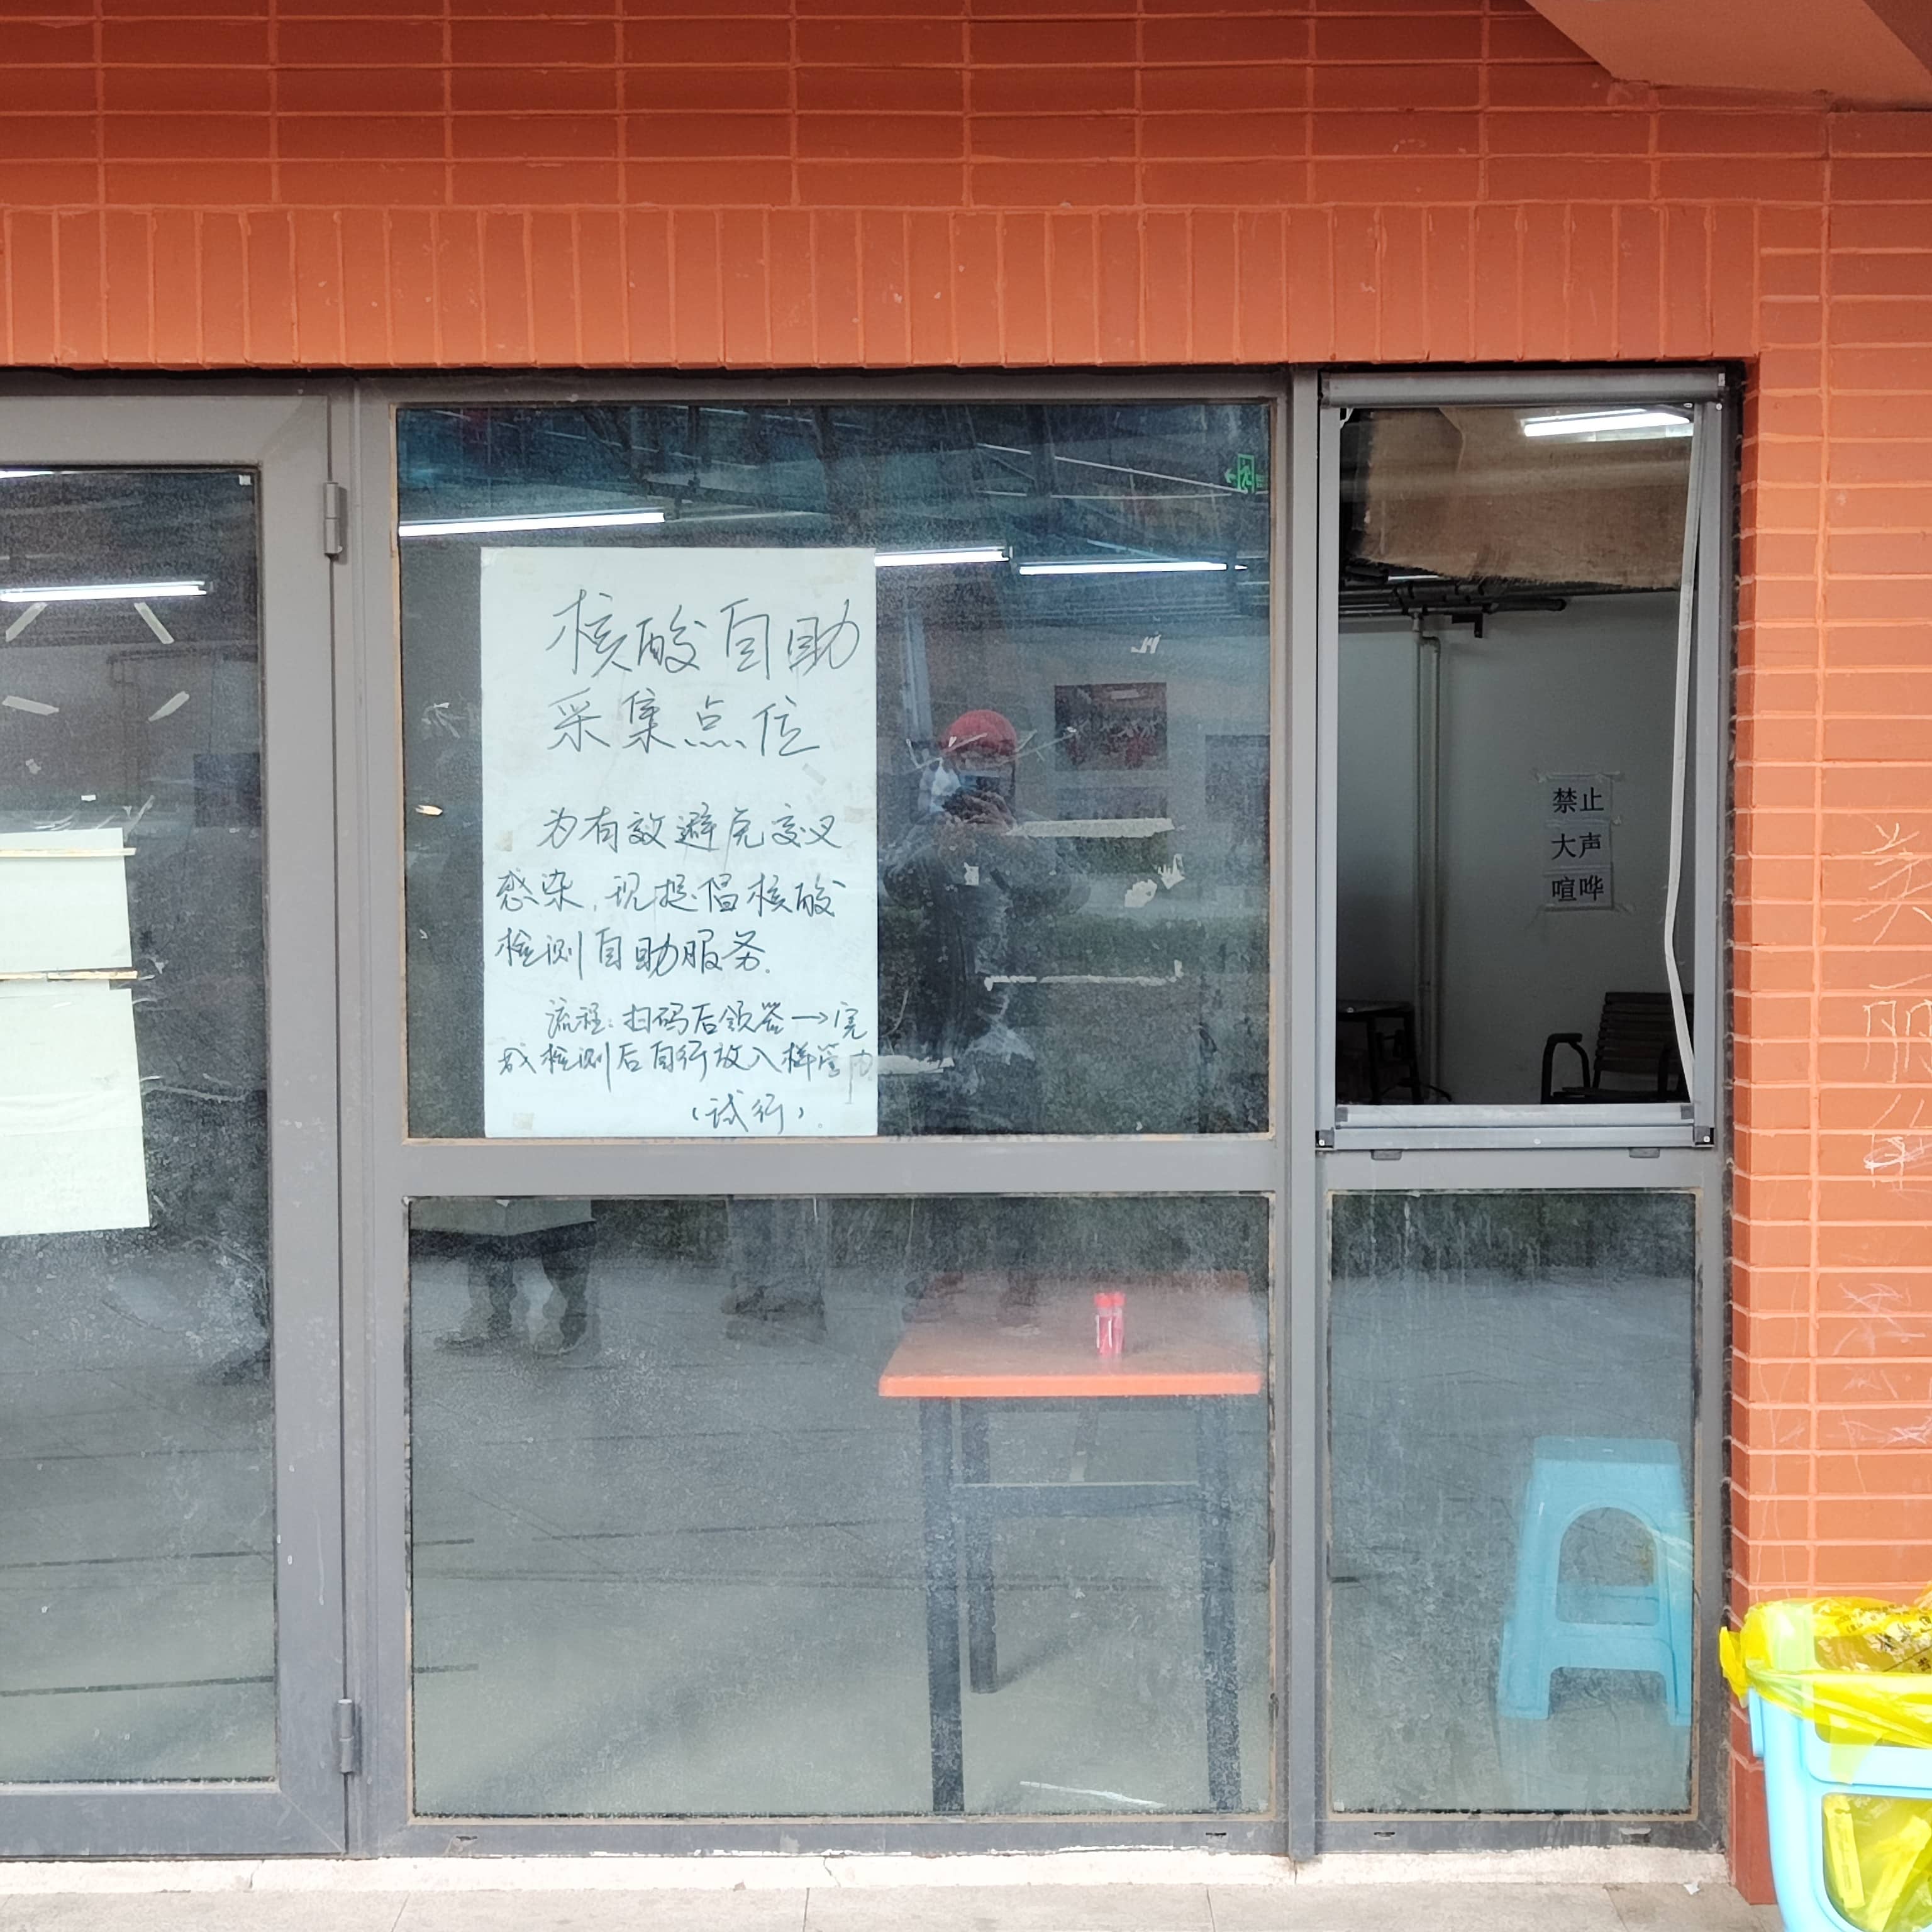 核酸自助
采集点位
为有效避免交叉
感染,现提倡核酸
检测自助服务.
流程:扫码后领签→完
成检测后自行放入样管内
(试行).
禁止
大声
喧哗